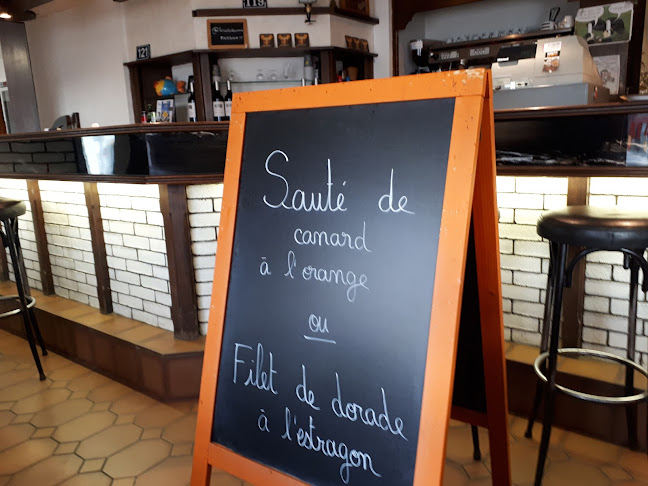 119
121
Sauté de
canard
à l'orange
ou
Filet de dorade
à l'estragon